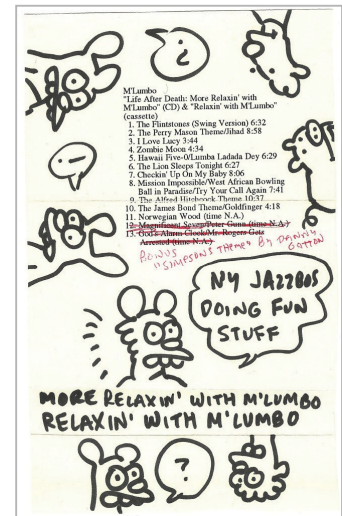 M'Lumbo
"Life After Death: More Relaxin' with
M'Lumbo" (CD) & "Relaxin' with M'Lumbo"
(cassette)
1. The Flintstones (Swing Version) 6:32
2. The Perry Mason Theme/Jihad 8:58
3. I Love Lucy 3:44
4. Zombie Moon 4:34
5. Hawaii Five-0/Lumba Ladada Dey 6:29
6. The Lion Sleeps Tonight 6:27
7. Checkin' Up On My Baby 8:06
8. Mission Impossible/West African Bowling
Ball in Paradise/Try Your Call Again 7:41
9. The Alfred Hitchcock Theme 10:37
10. The James Bond Theme/Goldfinger 4:18
11. Norwegian Wood (time N.A.)
12. Magnificent Seven/Peter Gunn (time N.A.)
13. God's Alarm Clock/Mr. Rogers Gets
Arrested (time N.A.)
BONUS
"SIMPSONS THEME" BY DANNY
GATTON
?
!
NY JAZZBOS
DOING FUN
STUFF
MORE RELAXIN' WITH M'LUMBO
RELAXIN' WITH M'LUMBO
?